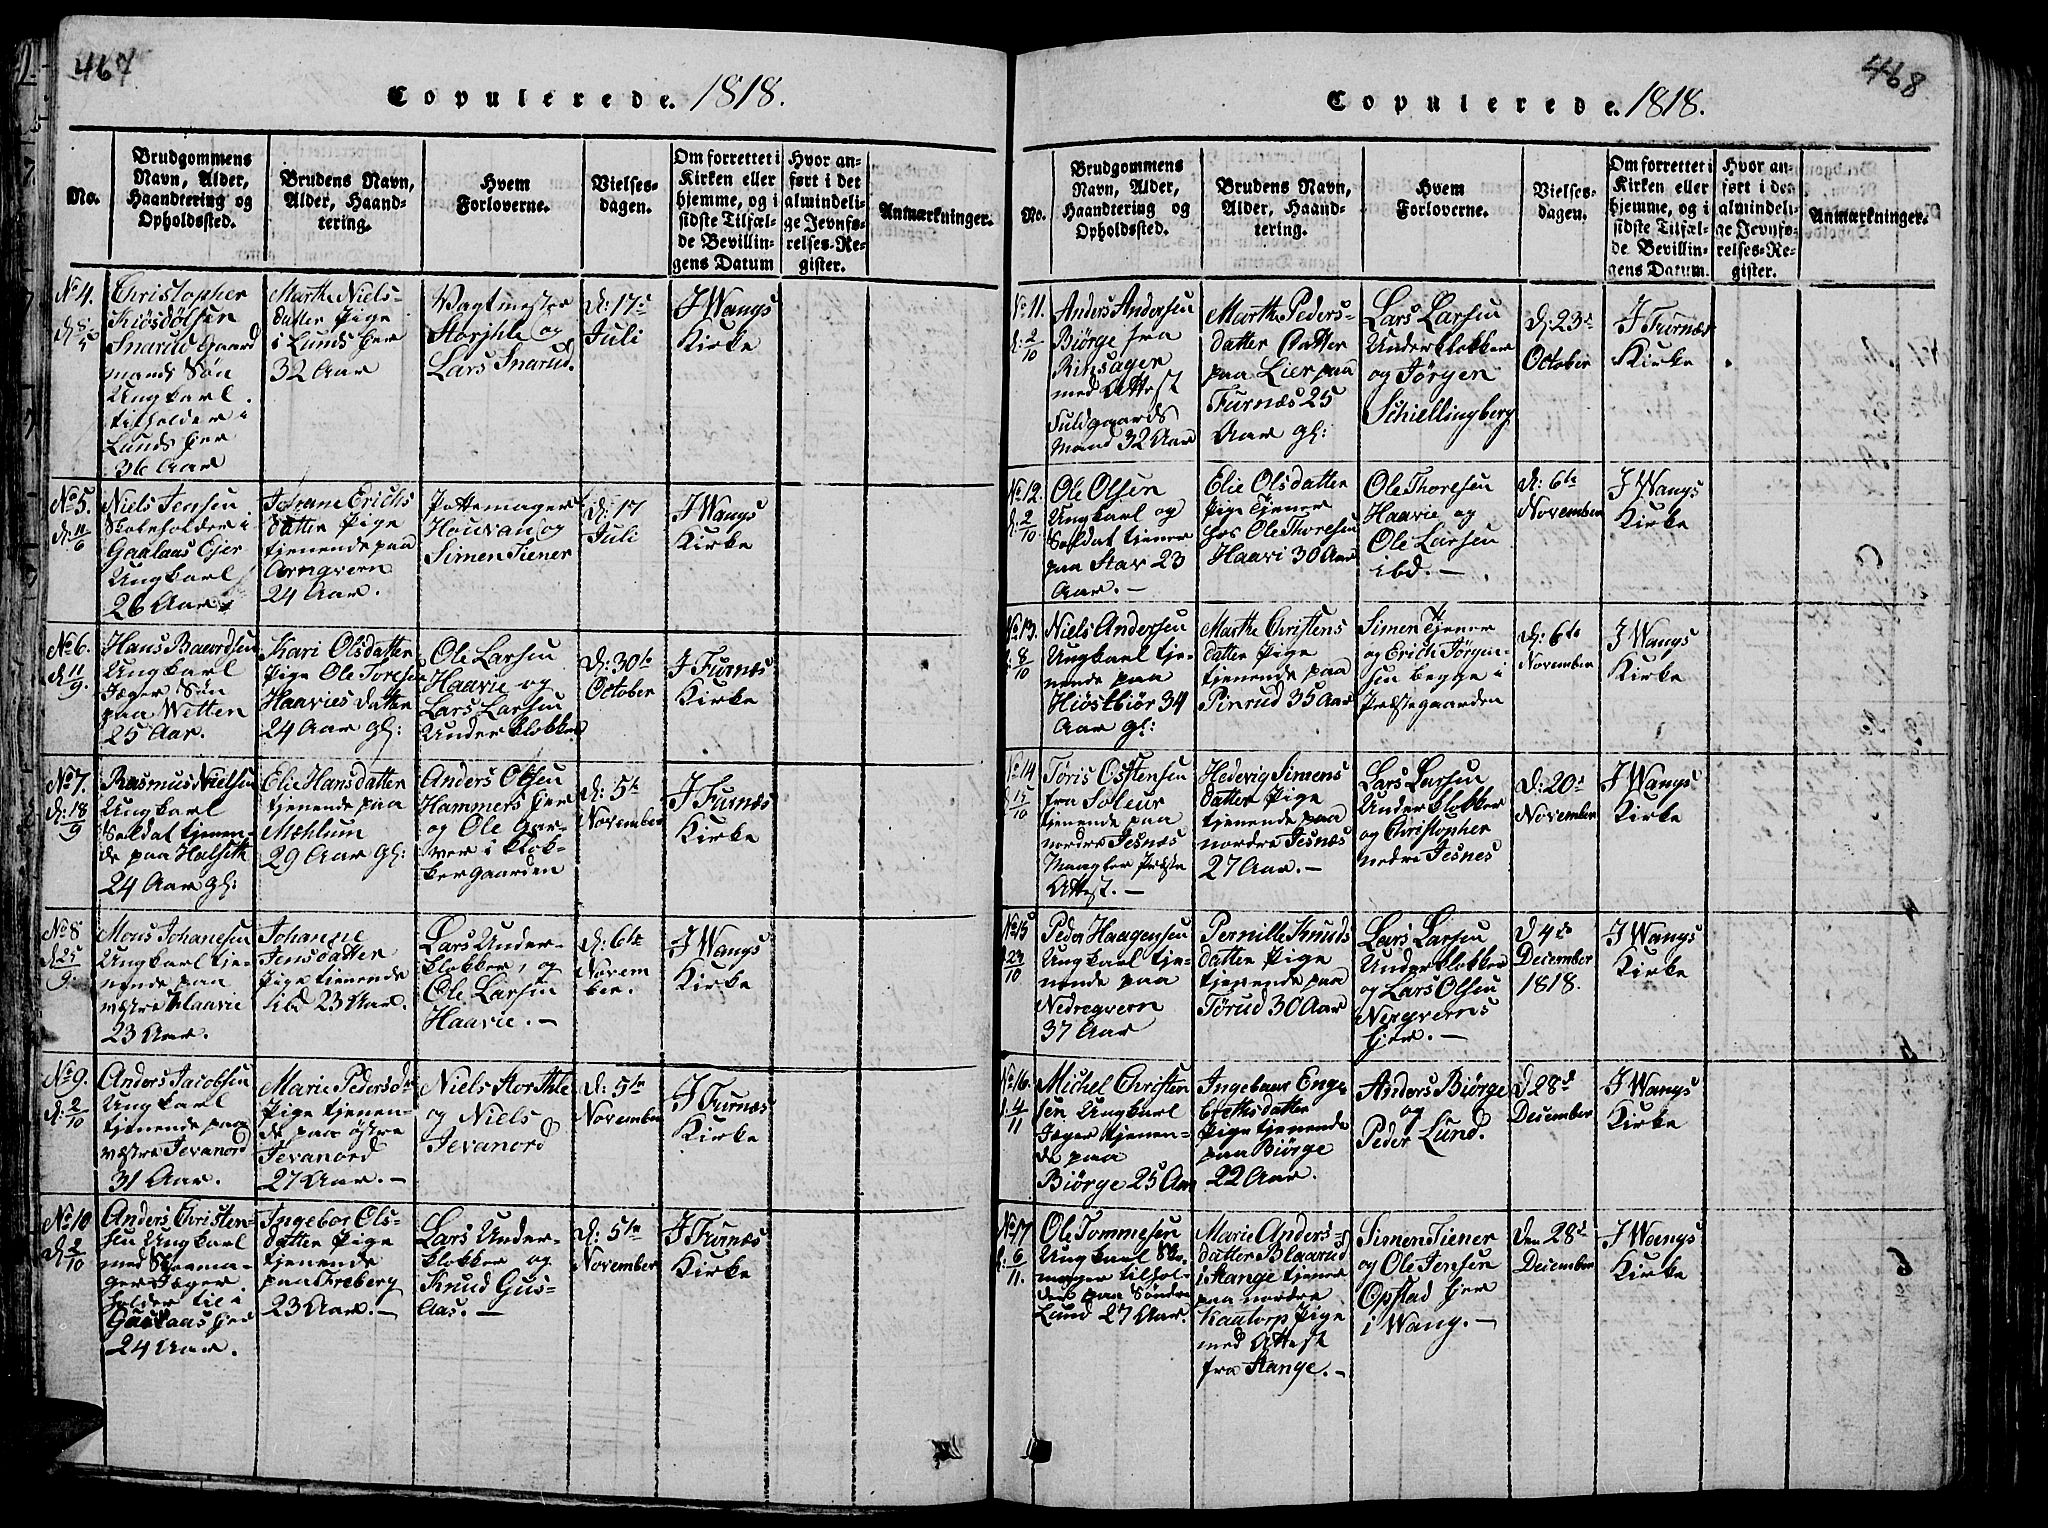 467
Copulerede. 1818.
No.
Brudgommens Navn, Alder, Haandtering og Opholdssted.
Brudens Navn, Alder, Haandtering.
Hvem Forloverne.
Vielsesdagen.
Om forrettet i Kirken eller hjemme, og i sidste Tilfælde Bevillingens Datum
Hvor anført i det almindelige Jevnførelses-Register.
Anmærkninger.
No 4.
Christopher
Kiøsdølsen
Snarud Gaard
mands Søn
Ungkarl
tilholder i
Lunds Eier
36 Aar
Marthe Niels-
datter Pige
i Lunds Eier
32 Aar
Vagtmester
Storhle og
Lars Snarud.
d: 17de
Juli
I Wangs
Kirke
No 5.
d: 11/6
Niels Jensen
Skoleholder i
Gaalaas Ejer
Ungkarl
26 Aar
Erichs
datter Pige
tjenende paa
Arngvern
24 Aar.
Pottemager
Houvan og
Simen Tiener
d: 17
Juli
I Wangs
Kirke
No 6.
d 11/9.
Hans Baardsen
Ungkarl
Jæger Søn
paa Wetten
25 Aar.
Kari Olsdatter
Pige Ole Toresen
Haavies datter
24 Aar gl:
Ole Larsen
Haavie og
Lars Larsen
Underklokker
d: 30te
October
I Furnæs
Kirke
No 7.
d: 18/9
Rasmus Nielsen
Ungkarl
Soldat tjenen-
de paa Halseth
24 Aar gl:
Elie Hansdatter
tjenende paa
Mæhlum
29 Aar gl:
Anders Olsen
Hammers Eier
og Ole Gar-
ver i Klok-
kergaarden
d: 5te
November
I Furnæs
Kirke
No 8
d 25/9
Mons Johanesen
Ungkarl tje-
nende paa
væstre Haavie
23 Aar.
Johanne
Jensdatter
Pige tienende
ibd 23 Aar.
Lars Under-
klokker, og
Ole Larsen
Haavie. –
d: 6te
Novem
ber.
I Wangs
Kirke
No 9.
d: 2/10
Anders Jacobsen
Ungkarl
tjenende paa
væstre Jevanord
31 Aar.
Marie Pedersdr
Pige tjenen-
de paa østre
Jevanord
27 Aar. –
Niels Storthle
og Niels
Jevanord
d: 5te
November
I Furnæs
Kirke
No 10
d 2/10
Anders Christen-
sen Ungkarl
med Skoma-
ger Jæger
holder til i
Gaalaas Eier
24 Aar.
Ingebor Ols-
datter Pige
tjenende
paa Freberg
23 Aar. –
Lars Under-
klokker og
Knud Gus-
Aas. –
d: 5te
November
I Furnæs
Kirke
468
Copulerede. 1818.
No.
Brudgommens Navn, Alder, Haandtering og Opholdssted.
Brudens Navn, Alder, Haandtering.
Hvem Forloverne.
Vielsesdagen.
Om forrettet i Kirken eller hjemme, og i sidste Tilfælde Bevillingens Datum.
Hvor anført i det almindelige Jevnførelses-Register.
Anmærkninger.
No 11.
d: 2/10
Anders Andersen
Biørge fra
Ringsager
med Attest
Fuldgaards
Mand 32 Aar
Marthe Peders-
datter Datter
paa Lier paa
Furnæs 25
Aar gl:
Lars Larsen
Underklokker
og Jørgen
Schiellingberg
d: 23de
October
I Furnæs
Kirke
No 12.
d: 2/10
Ole Olsen
Ungkarl og
Soldat tjener
paa Stav 23
Aar. –
Elie Olsdatter
Pige Tjener
hos Ole Thoresen
Haavi 30 Aar
Ole Thoresen
Haavie og
Ole Larsen
ibd. –
d: 6te
November
I Wangs
Kirke
No 13.
8/10
Niels Andersen
Ungkarl tje-
nende paa
Hiøstbiør 34
Aar gl:
Marthe Christens
datter Pige
tjenende paa
Pinrud 35 Aar
Simen Tjener
og Erich Jørgen-
sen begge i
Præstegaarden
d: 6te
November
I Wangs
Kirke
No 14
15/10
Tøris Østensen
fra Soleur
tjenende paa
nordre Jesnæs
Mangler Præste
Attest. –
Hedevig Simens
datter Pige
tjenende paa
nordre Jesnæs
27 Aar. –
Lars Larsen
Underklokker
og Christopher
nedre Jesnes
d: 20de
November
I Wangs
Kirke
No 15
23/10
Peder Haagensen
Ungkarl tje-
nende paa
Nedregvern
37 Aar
Pernille Knuds
datter Pige
tjenende paa
Tørud 30 Aar
Lars Larsen
Underklokker
og Lars Olsen
Nergverns
Eier. –
d 4de
December
1818.
I Wangs
Kirke
No 16.
4/11
Michel Christen
sen Ungkarl
Jæger tjenen-
de paa
Biørge 25 Aar
Ingebaar Enge
brethsdatter
Pige tjenende
paa Biørge
22 Aar.
Anders Biørge
og
Peder Lund.
d 28de
December
I Wangs
Kirke
No 17
d: 6/11.
Ole Tommesen
Ungkarl Sko-
mager tilhol-
der paa Søndre
Lund 27 Aar.
Marie Anders-
datter Blaarud
i Stange tjener
paa nordre
Kaatorp Pige
med Attest
fra Stange. –
Simen Tiener
og Ole Jensen
Opstad Eier
i Wang. –
Den 28de
December
I Wangs
Kirke